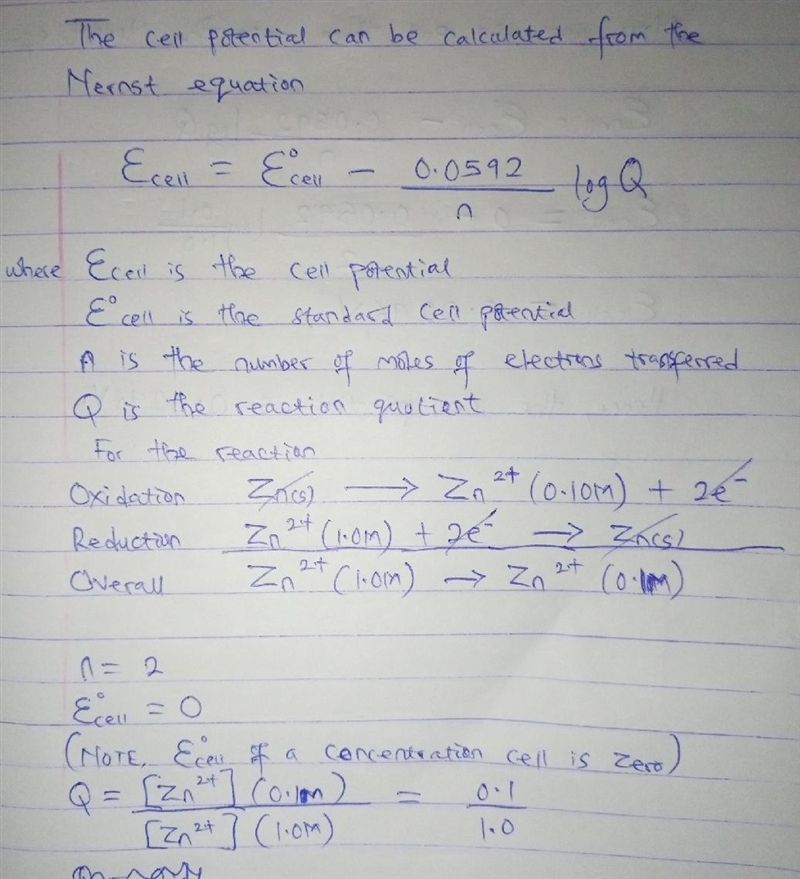 The cell potential can be calculated from the
Nernst equation
Ɛcell = Ɛ°cell − 0.0592/n log Q
where Ɛcell is the cell potential
Ɛ°cell is the standard cell potential
n is the number of moles of electrons transferred
Q is the reaction quotient
For the reaction
Oxidation Zn(s) → Zn²⁺ (0.10M) + 2e⁻
Reduction Zn²⁺ (1.0M) + 2e⁻ → Zn(s)
Overall Zn²⁺ (1.0M) → Zn²⁺ (0.1M)
n = 2
Ɛ°cell = 0
(NOTE, Ɛ°cell of a concentration cell is zero)
Q = [Zn²⁺] (0.1M) / [Zn²⁺] (1.0M) = 0.1 / 1.0